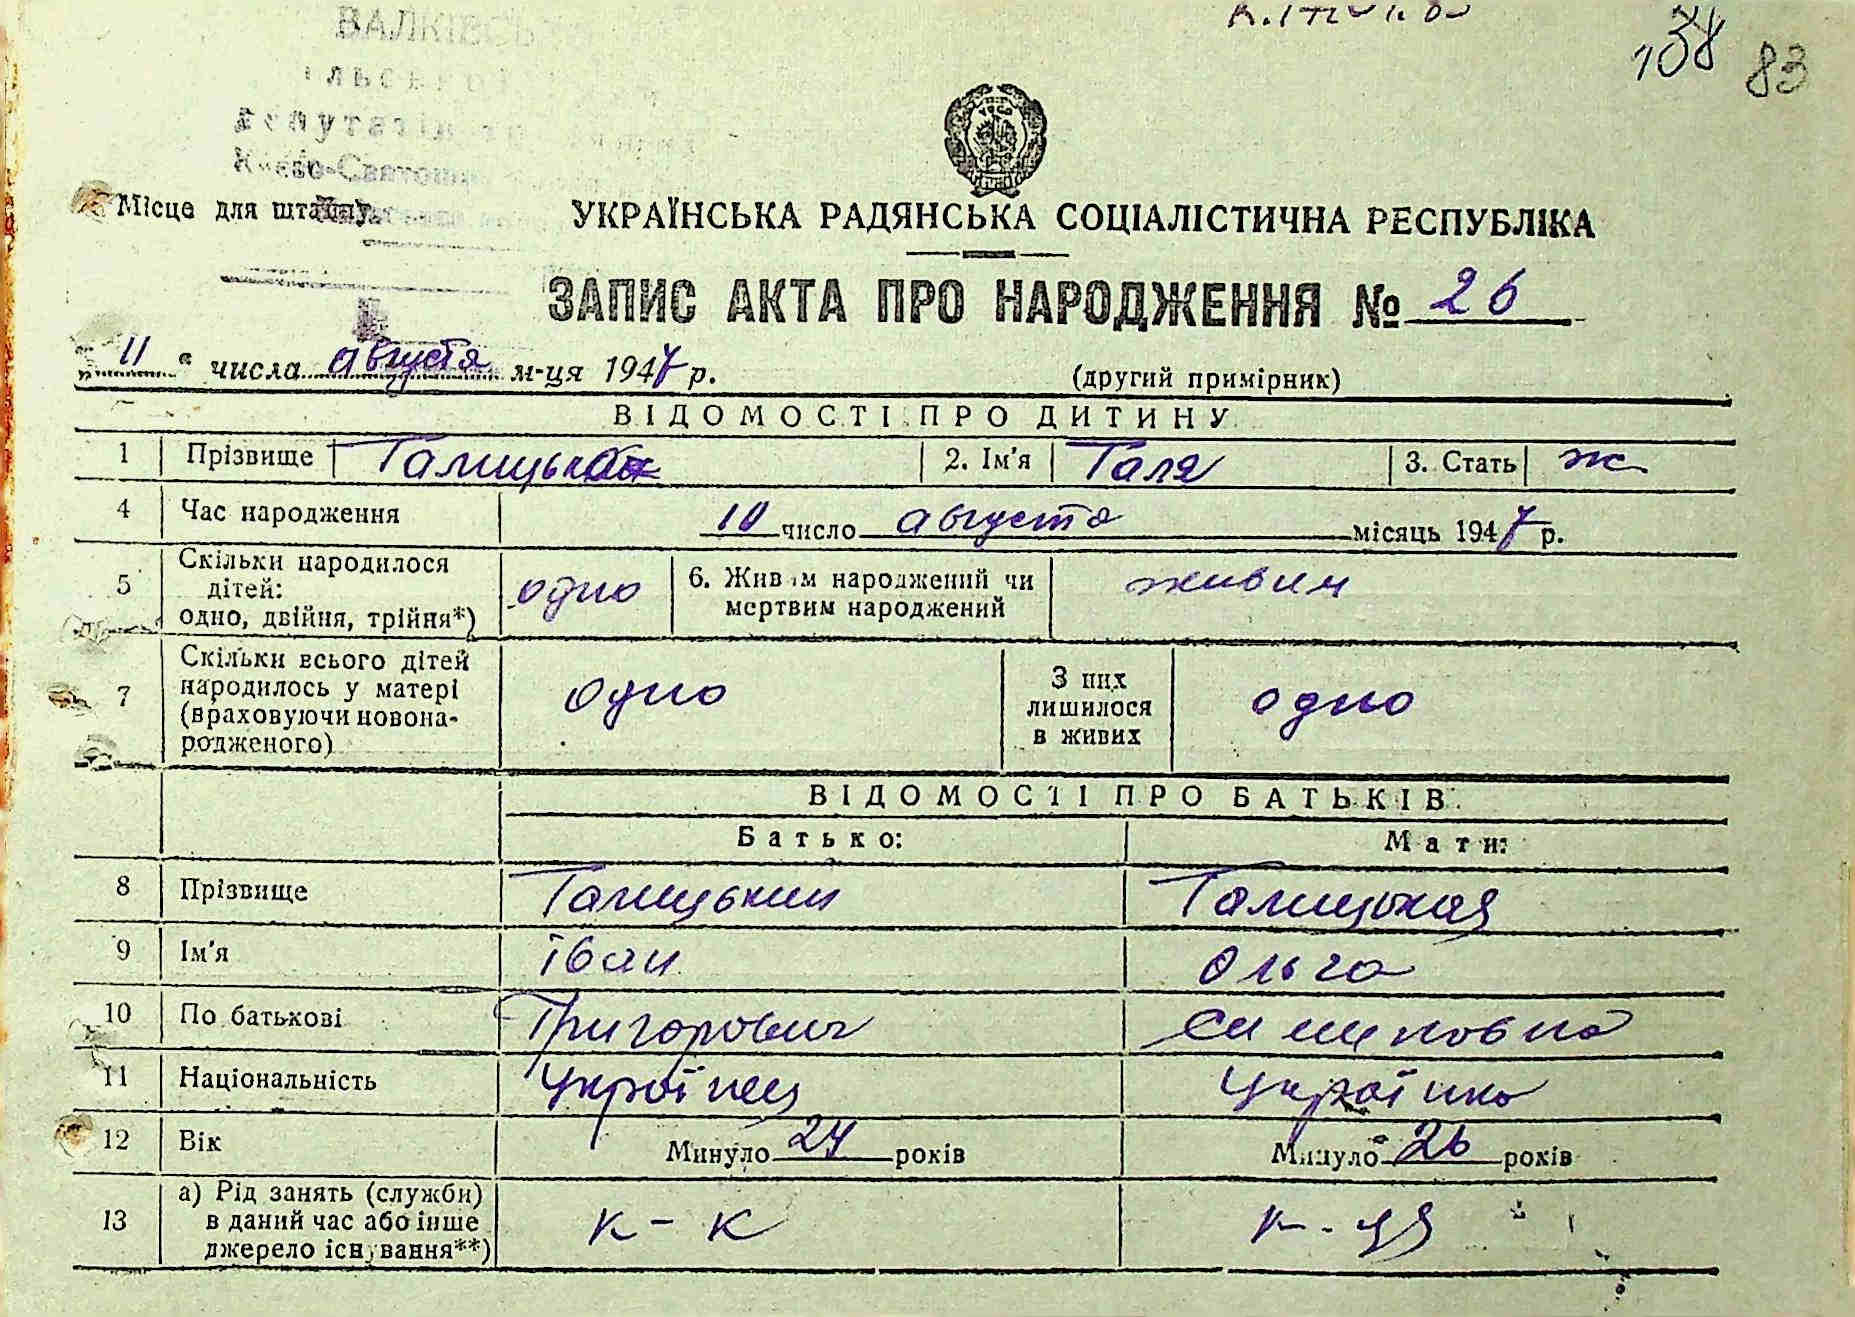 138 83
Місце для штампу
УКРАЇНСЬКА РАДЯНСЬКА СОЦІАЛІСТИЧНА РЕСПУБЛІКА
ЗАПИС АКТА ПРО НАРОДЖЕННЯ № 26
„ 11 “ числа августа м-ця 1947 р. (другий примірник)
ВІДОМОСТІ ПРО ДИТИНУ
1 Прізвище Галицька 2. Ім'я Галя 3. Стать ж
4 Час народження 10 число августа місяць 1947 р.
5 Скільки народилося
дітей:
одно, двійня, трійня*) одно 6. Живим народжений чи
мертвим народжений живим
7 Скільки всього дітей
народилось у матері
(враховуючи новона-
родженого) одно З них
лишилося
в живих одно
ВІДОМОСТІ ПРО БАТЬКІВ
Батько: Мати:
8 Прізвище Галицький Галицькая
9 Ім'я Іван Ольга
10 По батькові Григорович Симиновна
11 Національність Українец Українка
12 Вік Минуло 24 років Минуло 26 років
13 а) Рід занять (служби)
в даний час або інше
джерело існування**) к-к к-ця